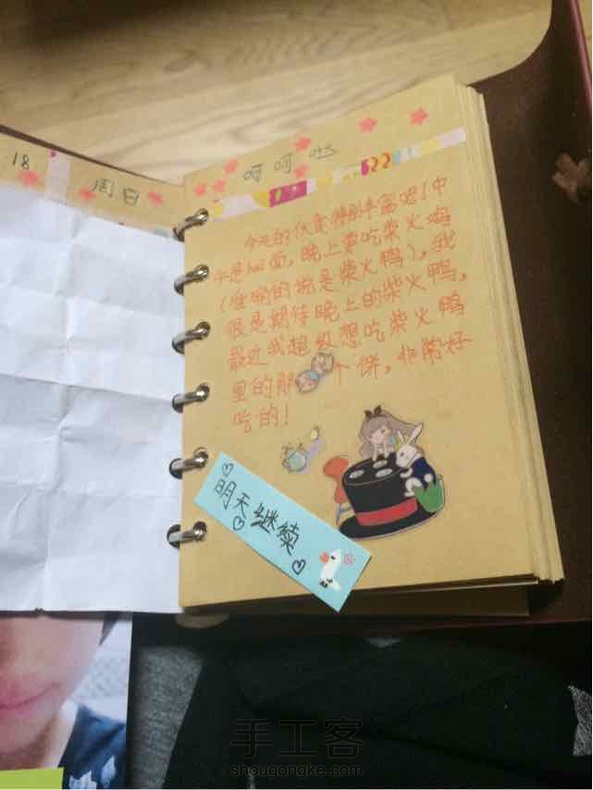 18 周日
呵呵哒
今天的伙食特别丰富喔！中
午是hai面，晚上要吃柴火鸡
（准确的说是柴火鸭），我
很是期待晚上的柴火鸭，
最近我超级想吃柴火鸭
里的那 个饼，非常好
吃的！
明天继续
手工客
shougongke.com